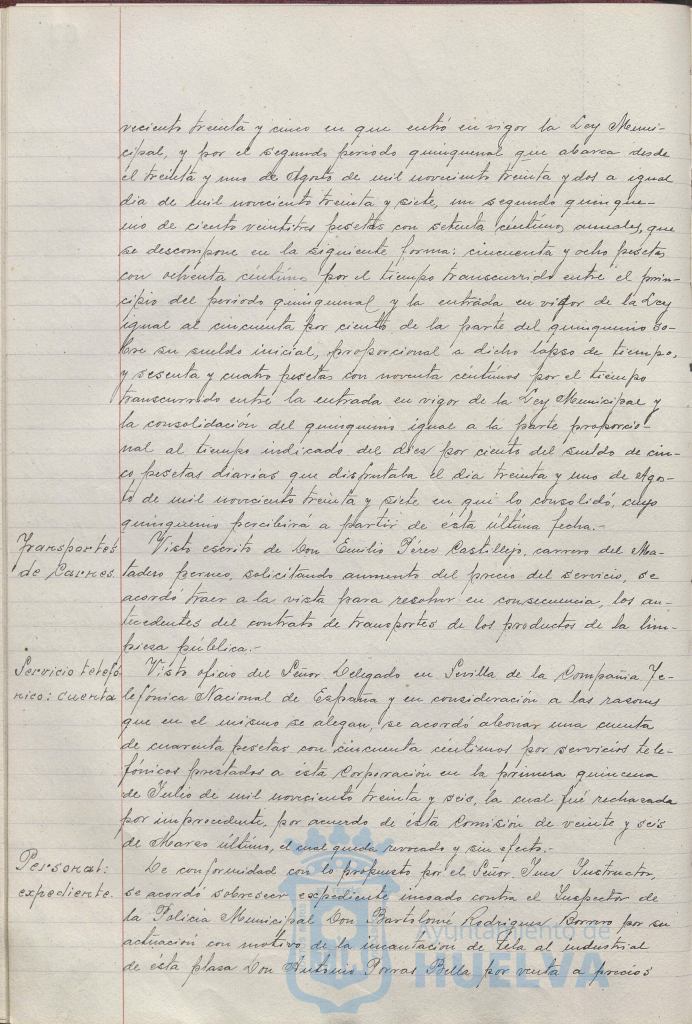 veciento treinta y cinco en que entró en vigor la Ley Muni-
cipal, y por el segundo periodo quinquenal que abarca desde
el treinta y uno de Agosto de mil novecientos treinta y dos a igual
dia de mil novecientos treinta y siete, un segundo quinque-
nio de ciento veintitres pesetas con setenta céntimos anuales, que
se descompone en la siguiente forma: cincuenta y ocho pesetas
con ochenta céntimos por el tiempo transcurrido entre el prin-
cipio del periodo quinquenal y la entrada en vigor de la Ley
igual al cincuenta por ciento de la parte del quinquenio so-
bre su sueldo inicial, proporcional a dicho lapso de tiempo,
y sesenta y cuatro pesetas con noventa céntimos por el tiempo
transcurrido entre la entrada en vigor de la Ley Municipal y
la consolidación del quinquenio igual a la parte proporcio-
nal al tiempo indicado del diez por ciento del sueldo de cin-
co pesetas diarias que disfrutaba el dia treinta y uno de Agos-
to de mil novecientos treinta y siete en que lo consolidó, cuyo
quinquenio percibirá a partir de ésta última fecha.-
Transportes
de Carnes.
Visto escrito de Don Emilio Pérez Castillejo, carrero del Ma-
tadero permo, solicitando aumento del precio del servicio, se
acordó traer a la vista para resolver en consecuencia, los an-
tecedentes del contrato de transportes de los productos de la lim-
pieza pública.-
Servicio telefó-
nico: cuenta
Visto oficio del Señor Delegado en Sevilla de la Compañia Te-
lefónica Nacional de España y en consideración a las razones
que en el mismo se alegan, se acordó abonar una cuenta
de cuarenta pesetas con cincuenta céntimos por servicios tele-
fónicos prestados a ésta Corporación en la primera quincena
de Julio de mil novecientos treinta y seis, la cual fué rechazada
por improcedente, por acuerdo de ésta Comisión de veinte y seis
de Marzo último, el cual queda revocado y sin efecto.-
Personal:
expediente.
De conformidad con lo propuesto por el Señor Juez Instructor,
se acordó sobreseer expediente incoado contra el Inspector de
la Policia Municipal Don Bartolomé Rodriguez Borrero por su
actuación con motivo de la incautación de tela al industrial
de ésta plaza Don Antonio Porras Bella por venta a precios
Ayuntamiento de
HUELVA